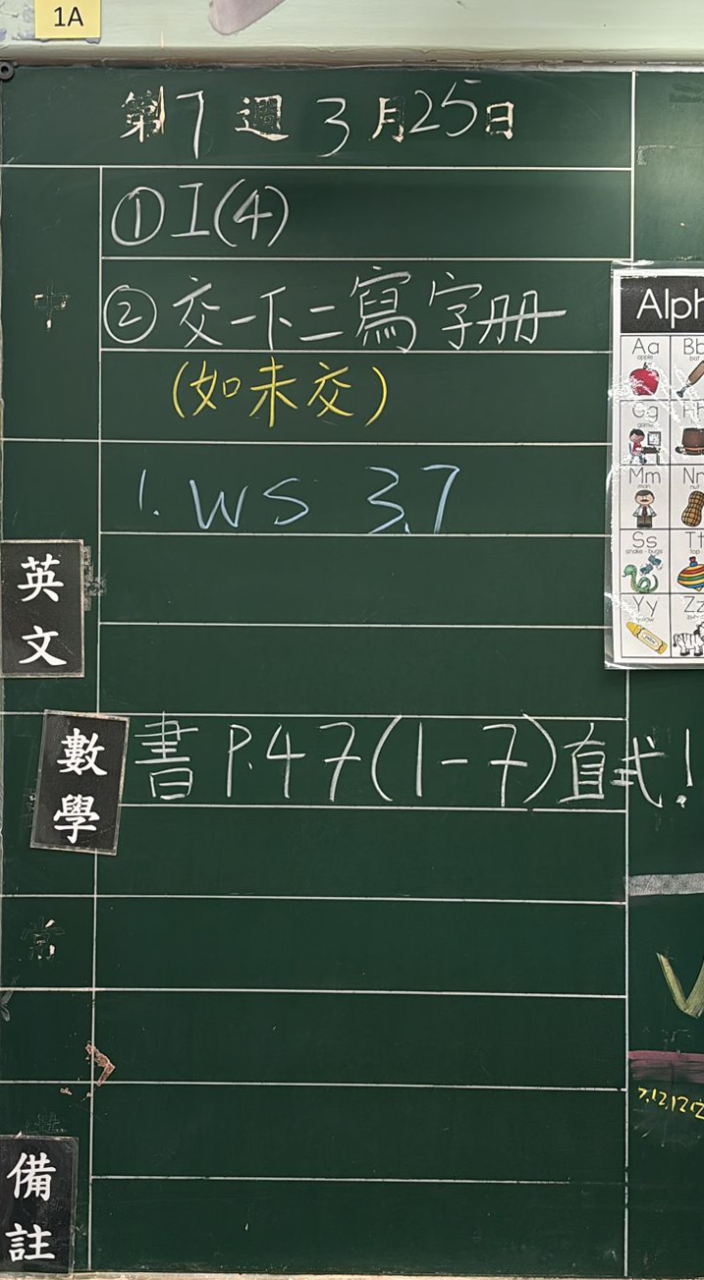 1A
第7週 3月25日
中
①工(4)
②交一下二寫字冊
(如未交)
英文
1. WS 3.7
數學
書 P.47(1-7)直式!
常
備註
Alph
Aa
apple
Bb
bat
Gg
game
Hh
Mm
man
Nn
nut
Ss
snake - bugs
Tt
top
Yy
yellow
Zz
zebra